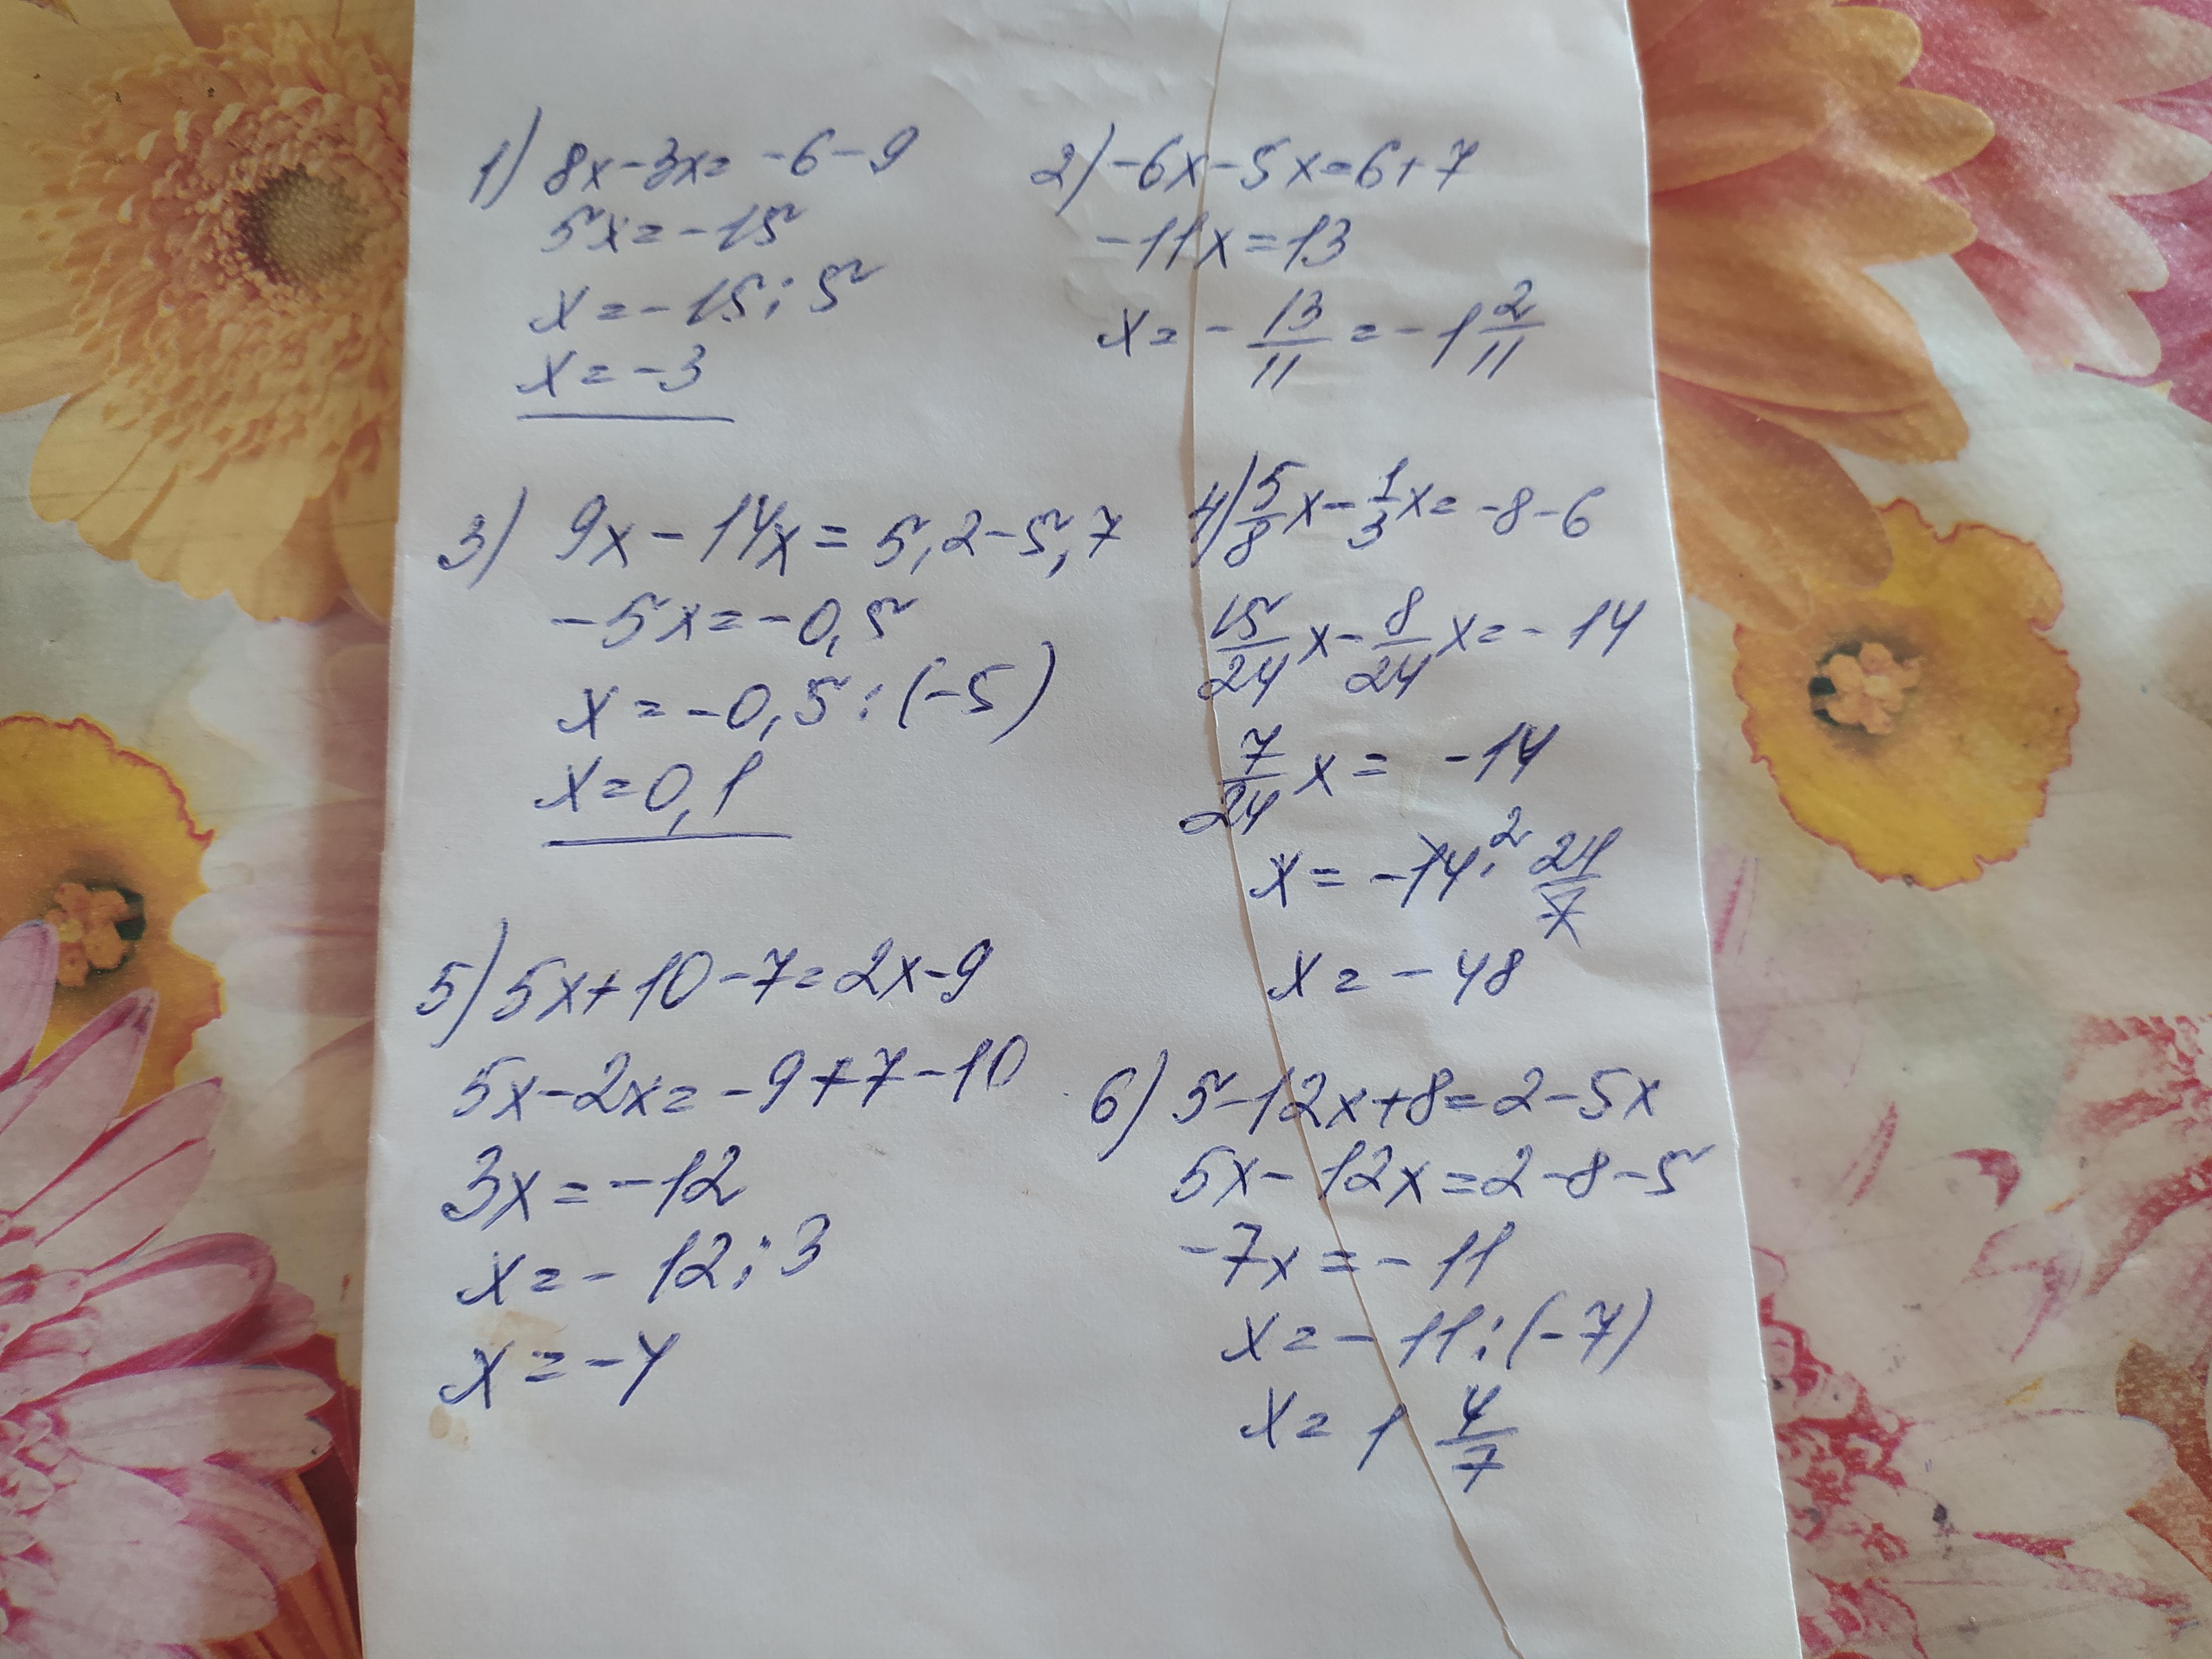 1) 8x-3x=-6-9
5x=-15
x=-15:5
x=-3
2) -6x-5x=6+7
-11x=13
x=-13/11=-1 2/11
3) 9x-14x=5,2-5,7
-5x=-0,5
x=-0,5:(-5)
x=0,1
4) 5/8x-1/3x=-8-6
15/24x-8/24x=-14
7/24x=-14
x=-14·2 24/7
x=-48
5) 5x+10-7=2x-9
5x-2x=-9+7-10
3x=-12
x=-12:3
x=-4
6) 5-12x+8=2-5x
5x-12x=2-8-5
-7x=-11
x=-11:(-7)
x=1 4/7